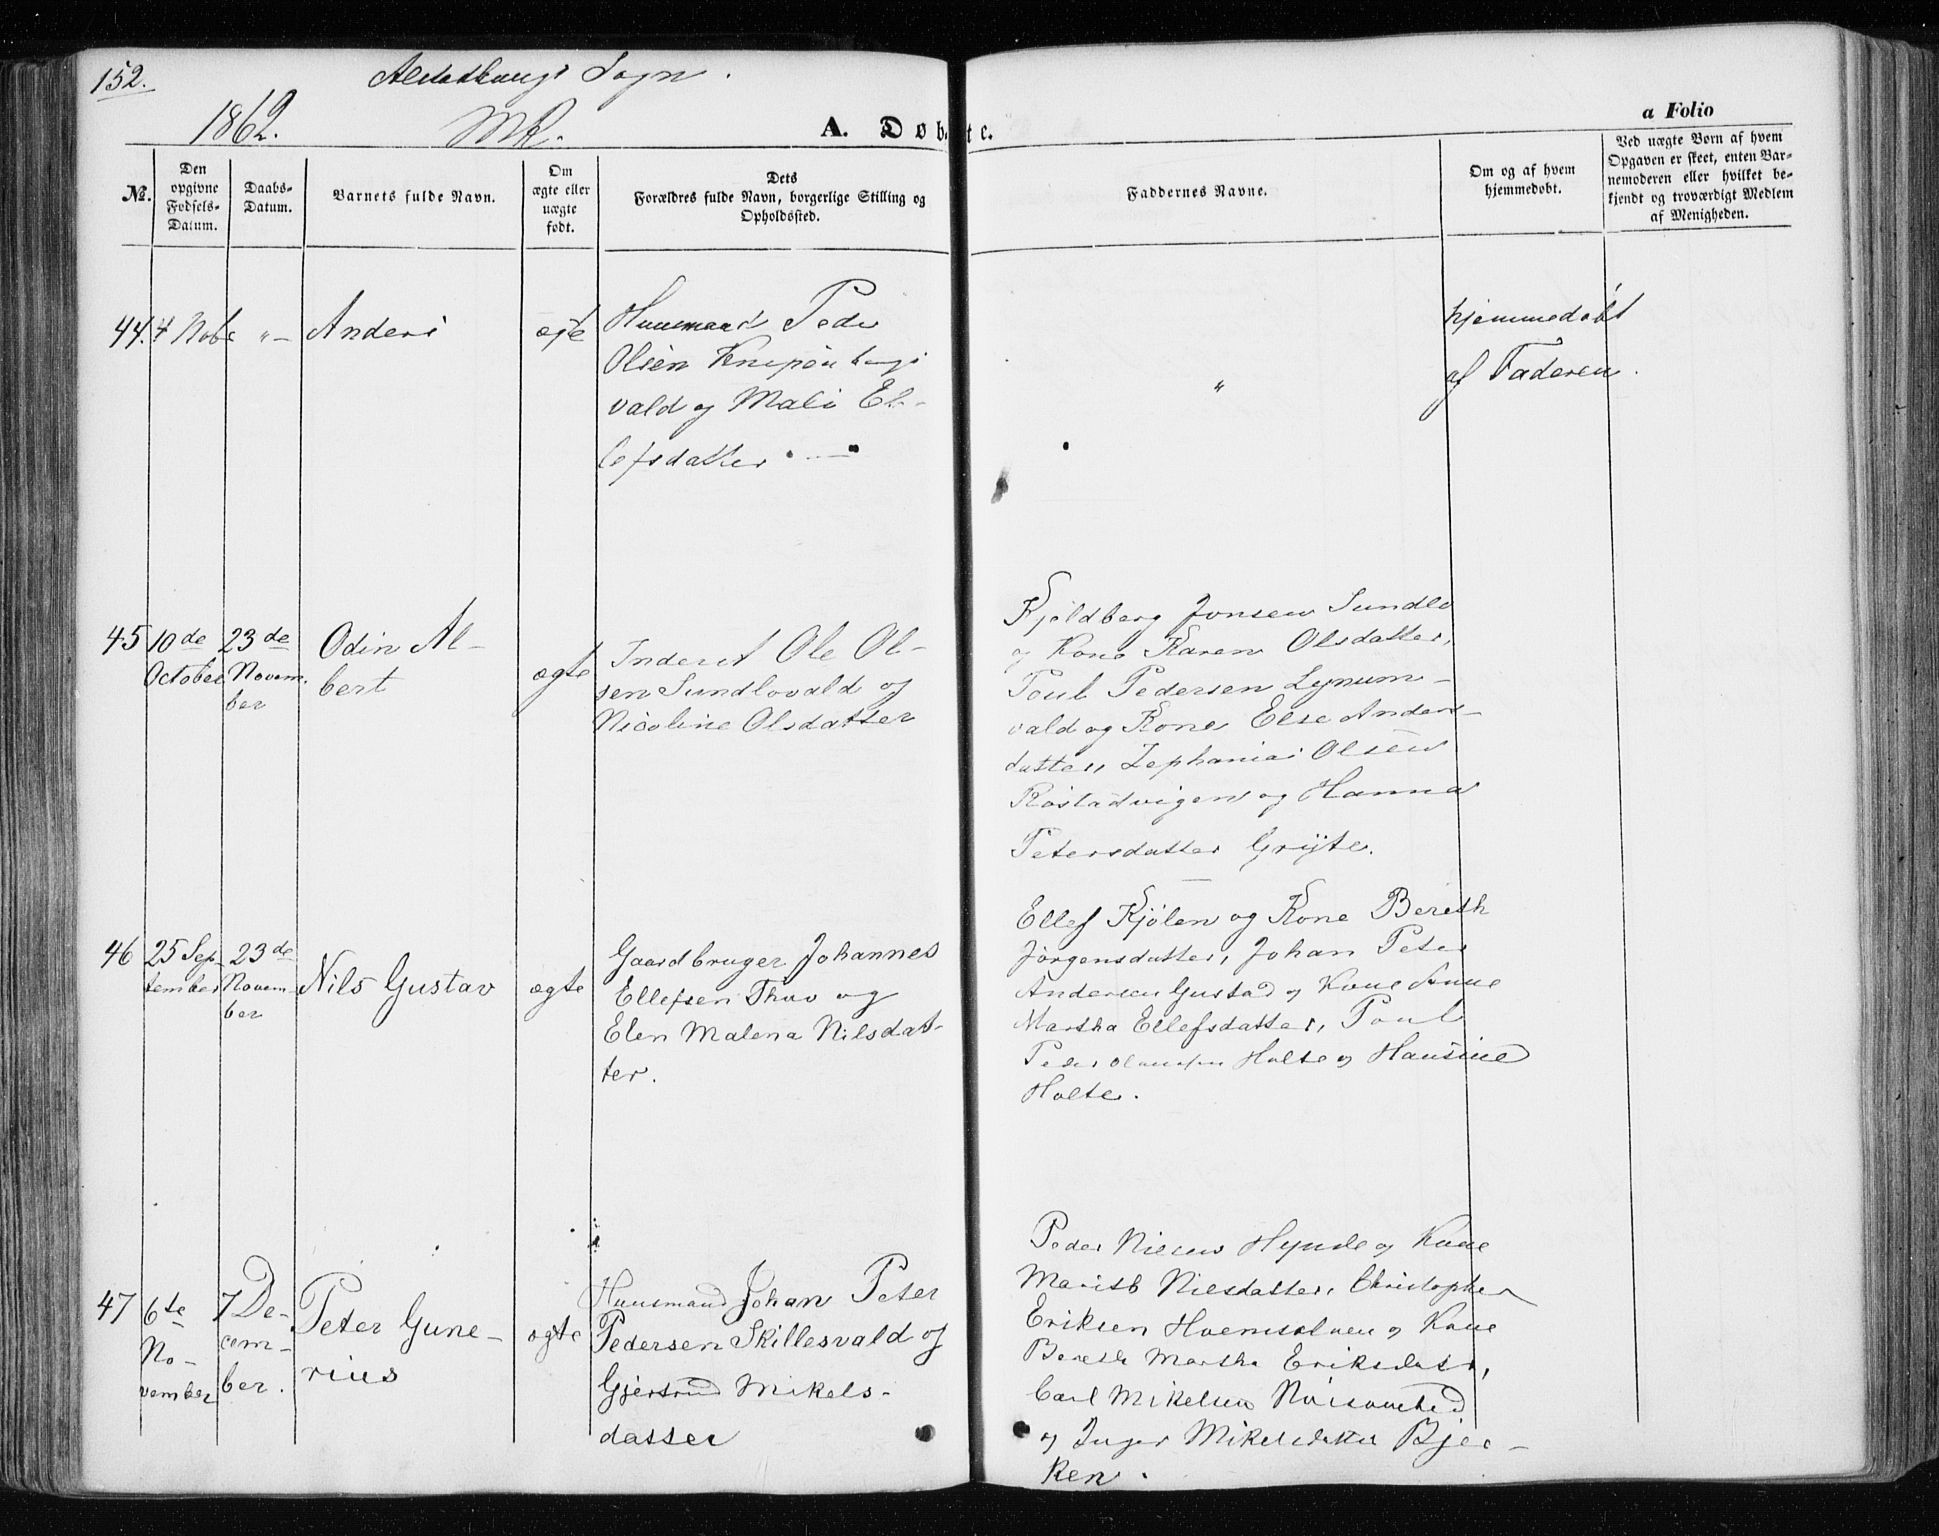 152.
Alstadhaugs Sogn.
1862.
MK.
A. Døbte.
a Folio
No.
Den opgivne Fødsels-Datum.
Daabs-Datum.
Barnets fulde Navn.
Om ægte eller uægte født.
Dets Forældres fulde Navn, borgerlige Stilling og Opholdssted.
Faddernes Navne.
Om og af hvem hjemmedøbt.
Ved uægte Børn af hvem Opgaven er skeet, enten Barnemoderen eller hvilket bekjendt og troværdigt Medlem af Menigheden.
44.
4 Nobr
"-
Anders
ægte
Huusmand Peder
Olsen
vald og Mali El-
lefsdatter
"
hjemmedøbt
af Faderen.
45
10de
October
23de
Novem.
ber
Odin Al-
bert
ægte
Inderst Ole Ol-
sen Sundlovald og
Nicoline Olsdatter
Kjeldberg Jonsen Sundlo
og Kone Karen Olsdatter,
Poul Pedersen Lynum-
vald og Kone Else Anders-
datter, Zephanias Olsen
Røstadvigen og Hanna
Petersdatter Grijte.
46
25 Sep-
tember
23de
Novem-
ber
Nils Gustav
ægte
Gaardbruger Johannes
Ellefsen Thuv og
Elen Malena Nilsdat-
ter.
Ellef Kjølen og Kone Bereth
Jørgensdatter, Johan Peter
Andersen Gustad og Kone Anne
Martha Ellefsdatter, Poul
Peder Holte og Hansine
Holte.
47
6te
No-
vember
7 De-
cem-
ber.
Peter Gune-
rius
ægte
Huusmand Johan Peter
Pedersen Skillesvald og
Gjertrud Mikels-
datter
Peder Nilsen Hynde og Kone
Marith Nilsdatter, Christopher
Eriksen og Kone
Bereth Martha Eriksdatr,
Carl Mikelsen
og Inger Mikelsdatter Bjer-
ken.